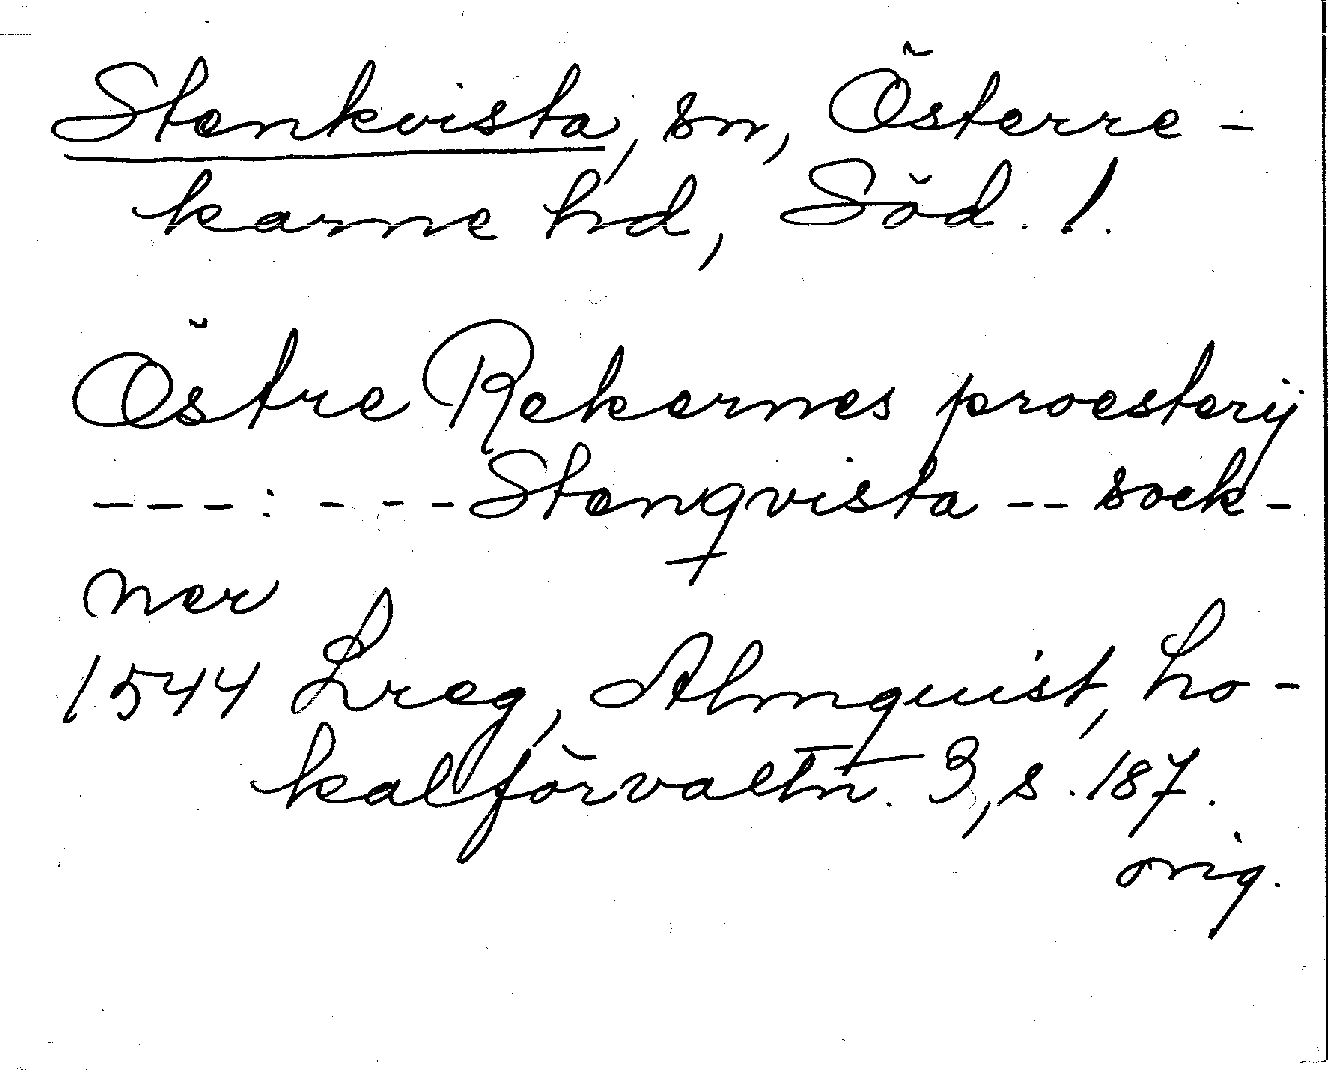 Stenkvista, sn, Österre-
karne hd, Söd. 1.
Östre Rekernes proesterij
---:---Stenqvista -- sock-
ner
1544 Lreg, Almquist, Lo-
kalförvaltn. 3, s. 187.
orig.